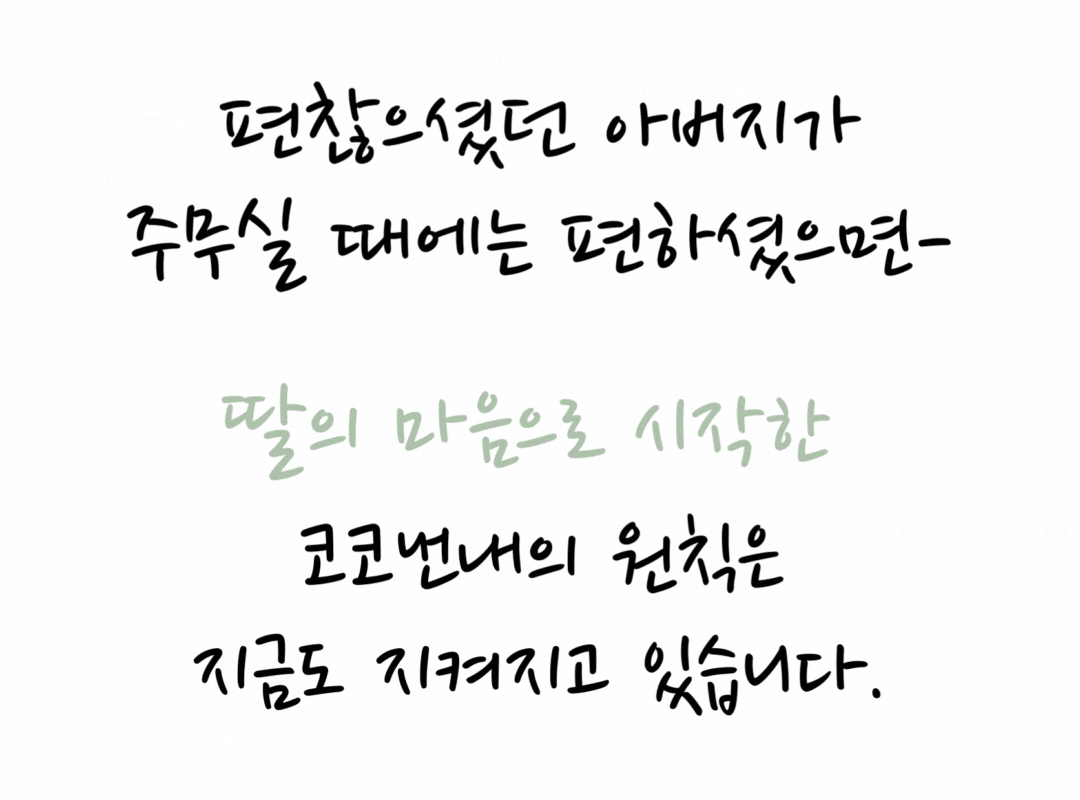 편찮으셨던 아버지가
주무실 때에는 편하셨으면-
딸의 마음으로 시작한
코코번내의 원칙은
지금도 지켜지고 있습니다.